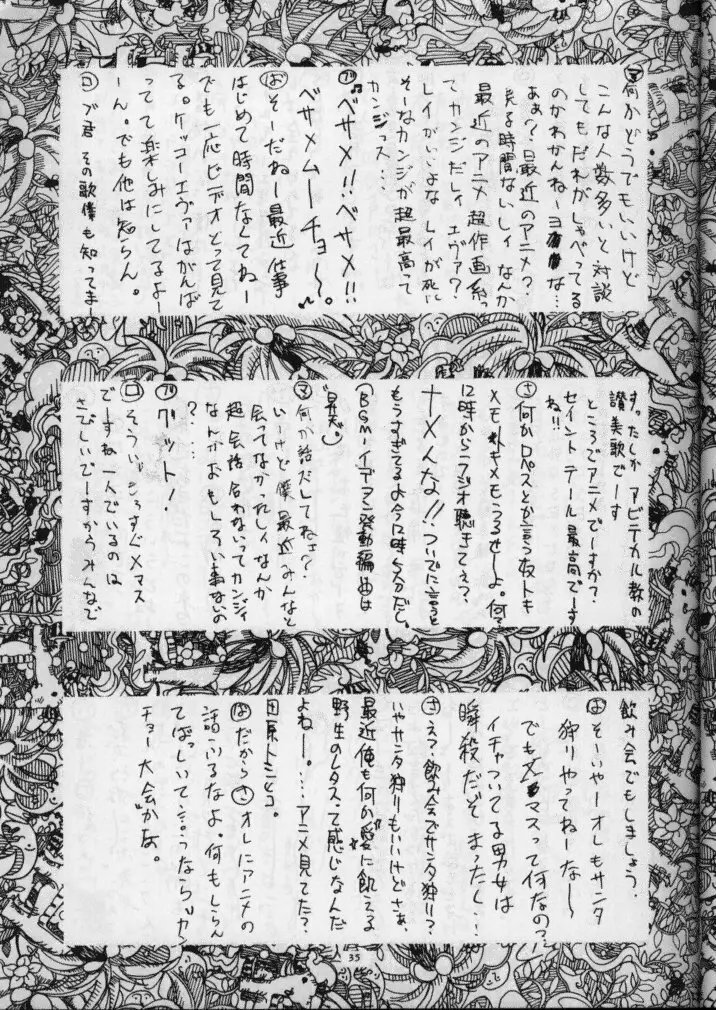 ㋮何かどうでもいいけど
こんな人数多いと対談
してもだれがしゃべってる
のかわかんねーヨな…
あぁ?最近のアニメ?
見る時間ないしィなんか
最近のアニメ超作画系
てカンジだしィエヴァ?
レイがいいよなレイが死に
そーなカンジが超最高って
カンジっス…
㋫♫ベサメ!!ベサメ!!
ベサメムーチョ〜。♪
㋩そーだねー最近仕事
はじめて時間なくてねー
でも一応ビデオとって見て
る。ケッコーエヴァはがんば
ってて楽しみにしてるよー
ーん。でも他は知らん。
㋺ブ君その歌僕も知ってまー
す。たしかアビテカル教の
讃美歌でーす
ところでアニメでーすか?
セイントテール最高でーす
ね!!
㋚何かロペスとか言う奴トキ
メモトキメモうるせーよ。何?
12時からラジオ聴きてぇ?
ナメんな!!ついでに言うと
もうすぎてるよ今12時 分だし。
(BGM・イデオン発動編曲は
㋮何か話だしてねェ?
いーけど僕最近みんなと
会ってなかったしィなんか
超会話合わないってカンジィ
なんかおもしろい事ないの
?……
㋫グット!
㋺そういえばもうすぐXマス
ですね一人でいるのは
さびしいでーすからみんなで
飲み会でもしましょう。
㋩そーいやーオレもサンタ
狩りやってねーな〜
でもXマスって何なの?
イチャついてる男女は
瞬殺だぞまったく…!
㋚え?飲み会でサンタ狩り?
いやサンタ狩りもいいけどさぁ、
最近俺も何か愛に飢える
野生のレタスって感じなんだ
よねー。…アニメ見てた?
田原トシヒコ。
㋩だから㋚オレにアニメの
話ふるなよ。何もしらん
てばっしいて…っならリカ
チョー大会かな。
35